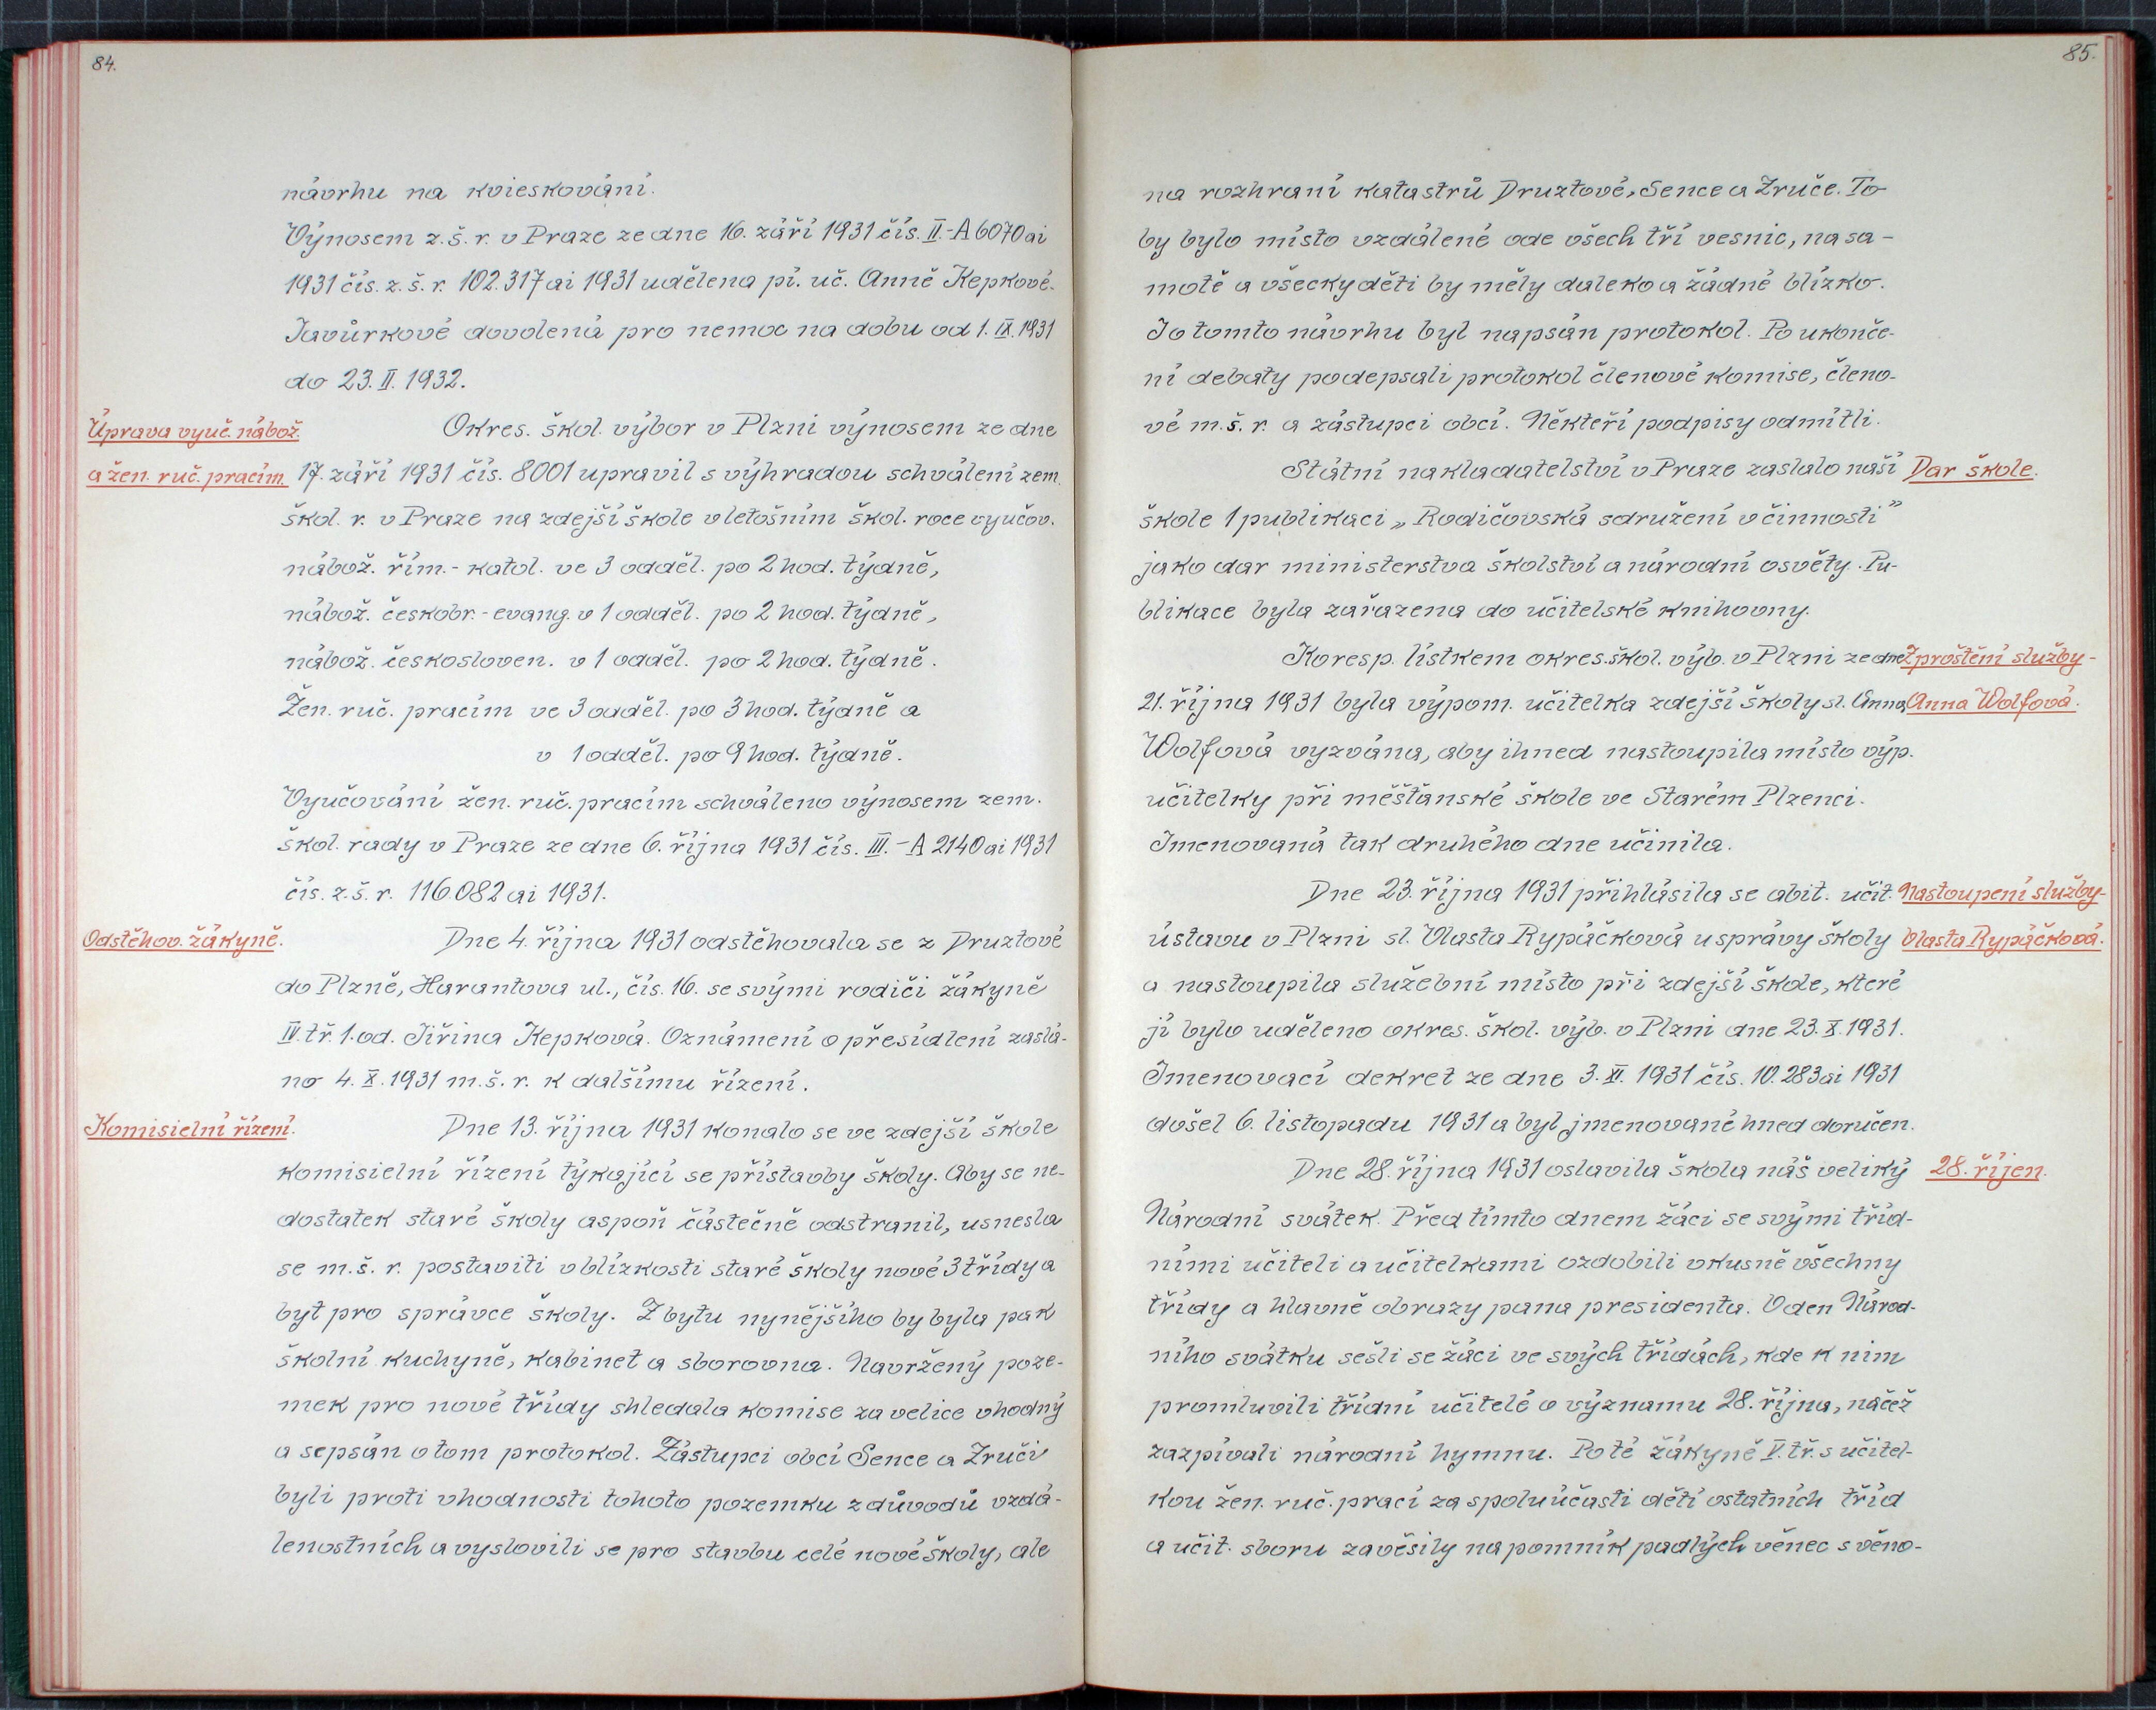 84.
návrhu na kvieskování.
Výnosem z.š.r. v Praze ze dne 16. září 1931 čís. II.-A 6070 ai
1931 čís. z.š.r. 102.317 ai 1931 udělena pí. uč. Anně Kepkové-
Javůrkové dovolená pro nemoc na dobu od 1. IX. 1931
do 23. II. 1932.
Úprava vyuč. nábož. Okres. škol. výbor v Plzni výnosem ze dne
a žen. ruč. pracím. 17. září 1931 čís. 8001 upravil s výhradou schválení zem.
škol. r. v Praze na zdejší škole v letošním škol. roce vyučov.
nábož. řím.-katol. ve 3 odděl. po 2 hod. týdně,
nábož. českobr.-evang. v 1 odděl. po 2 hod. týdně,
nábož. českosloven. v 1 odděl. po 2 hod. týdně.
Žen. ruč. pracím ve 3 odděl. po 3 hod. týdně a
v 1 odděl. po 9 hod. týdně.
Vyučování žen. ruč. pracím schváleno výnosem zem.
škol. rady v Praze ze dne 6. října 1931 čís. III.-A 2140 ai 1931
čís. z.š.r. 116.082 ai 1931.
Odstěhov. žákyně. Dne 4. října 1931 odstěhovala se z Druztové
do Plzně, Harantova ul., čís. 16. se svými rodiči žákyně
IV. tř. 1. od. Jiřina Kepková. Oznámení o přesídlení zaslá-
no 4. X. 1931 m.š.r. k dalšímu řízení.
Komisielní řízení. Dne 13. října 1931 konalo se ve zdejší škole
komisielní řízení týkající se přístavby školy. Aby se ne-
dostatek staré školy aspoň částečně odstranil, usnesla
se m.š.r. postaviti v blízkosti staré školy nové 3 třídy a
byt pro správce školy. Z bytu nynějšího by byla pak
školní kuchyně, kabinet a sborovna. Navržený poze-
mek pro nové třídy shledala komise za velice vhodný
a sepsán o tom protokol. Zástupci obcí Sence a Zruči
byli proti vhodnosti tohoto pozemku z důvodů vzdá-
lenostních a vyslovili se pro stavbu celé nové školy, ale
85.
na rozhraní katastrů Druztové, Sence a Zruče. To
by bylo místo vzdálené ode všech tří vesnic, na sa-
motě a všecky děti by měly daleko a žádné blízko.
I o tomto návrhu byl napsán protokol. Po ukonče-
ní debaty podepsali protokol členové komise, členo-
vé m.š.r. a zástupci obcí. Někteří podpisy odmítli.
Státní nakladatelství v Praze zaslalo naší Dar škole.
škole 1 publikaci „Rodičovská sdružení v činnosti"
jako dar ministerstva školství a národní osvěty. Pu-
blikace byla zařazena do učitelské knihovny.
Koresp. lístkem okres. škol. výb. v Plzni ze dne Zproštění služby-
21. října 1931 byla výpom. učitelka zdejší školy sl. Anna Anna Wolfová.
Wolfová vyzvána, aby ihned nastoupila místo výp.
učitelky při měšťanské škole ve Starém Plzenci.
Jmenovaná tak druhého dne učinila.
Dne 23. října 1931 přihlásila se abit. učit. Nastoupení služby-
ústavu v Plzni sl. Vlasta Rypáčková u správy školy Vlasta Rypáčková.
a nastoupila služební místo při zdejší škole, které
jí bylo uděleno okres. škol. výb. v Plzni dne 23. X. 1931.
Jmenovací dekret ze dne 3. XI. 1931 čís. 10.283 ai 1931
došel 6. listopadu 1931 a byl jmenované hned doručen.
Dne 28. října 1931 oslavila škola náš veliký 28. říjen.
Národní svátek. Před tímto dnem žáci se svými tříd-
ními učiteli a učitelkami ozdobili vkusně všechny
třídy a hlavně obrazy pana presidenta. V den Národ-
ního svátku sešli se žáci ve svých třídách, kde k nim
promluvili třídní učitelé o významu 28. října, načež
zazpívali národní hymnu. Poté žákyně V. tř. s učitel-
kou žen. ruč. prací za spoluúčasti dětí ostatních tříd
a učit. sboru zavěsily na pomník padlých věnec s věno-